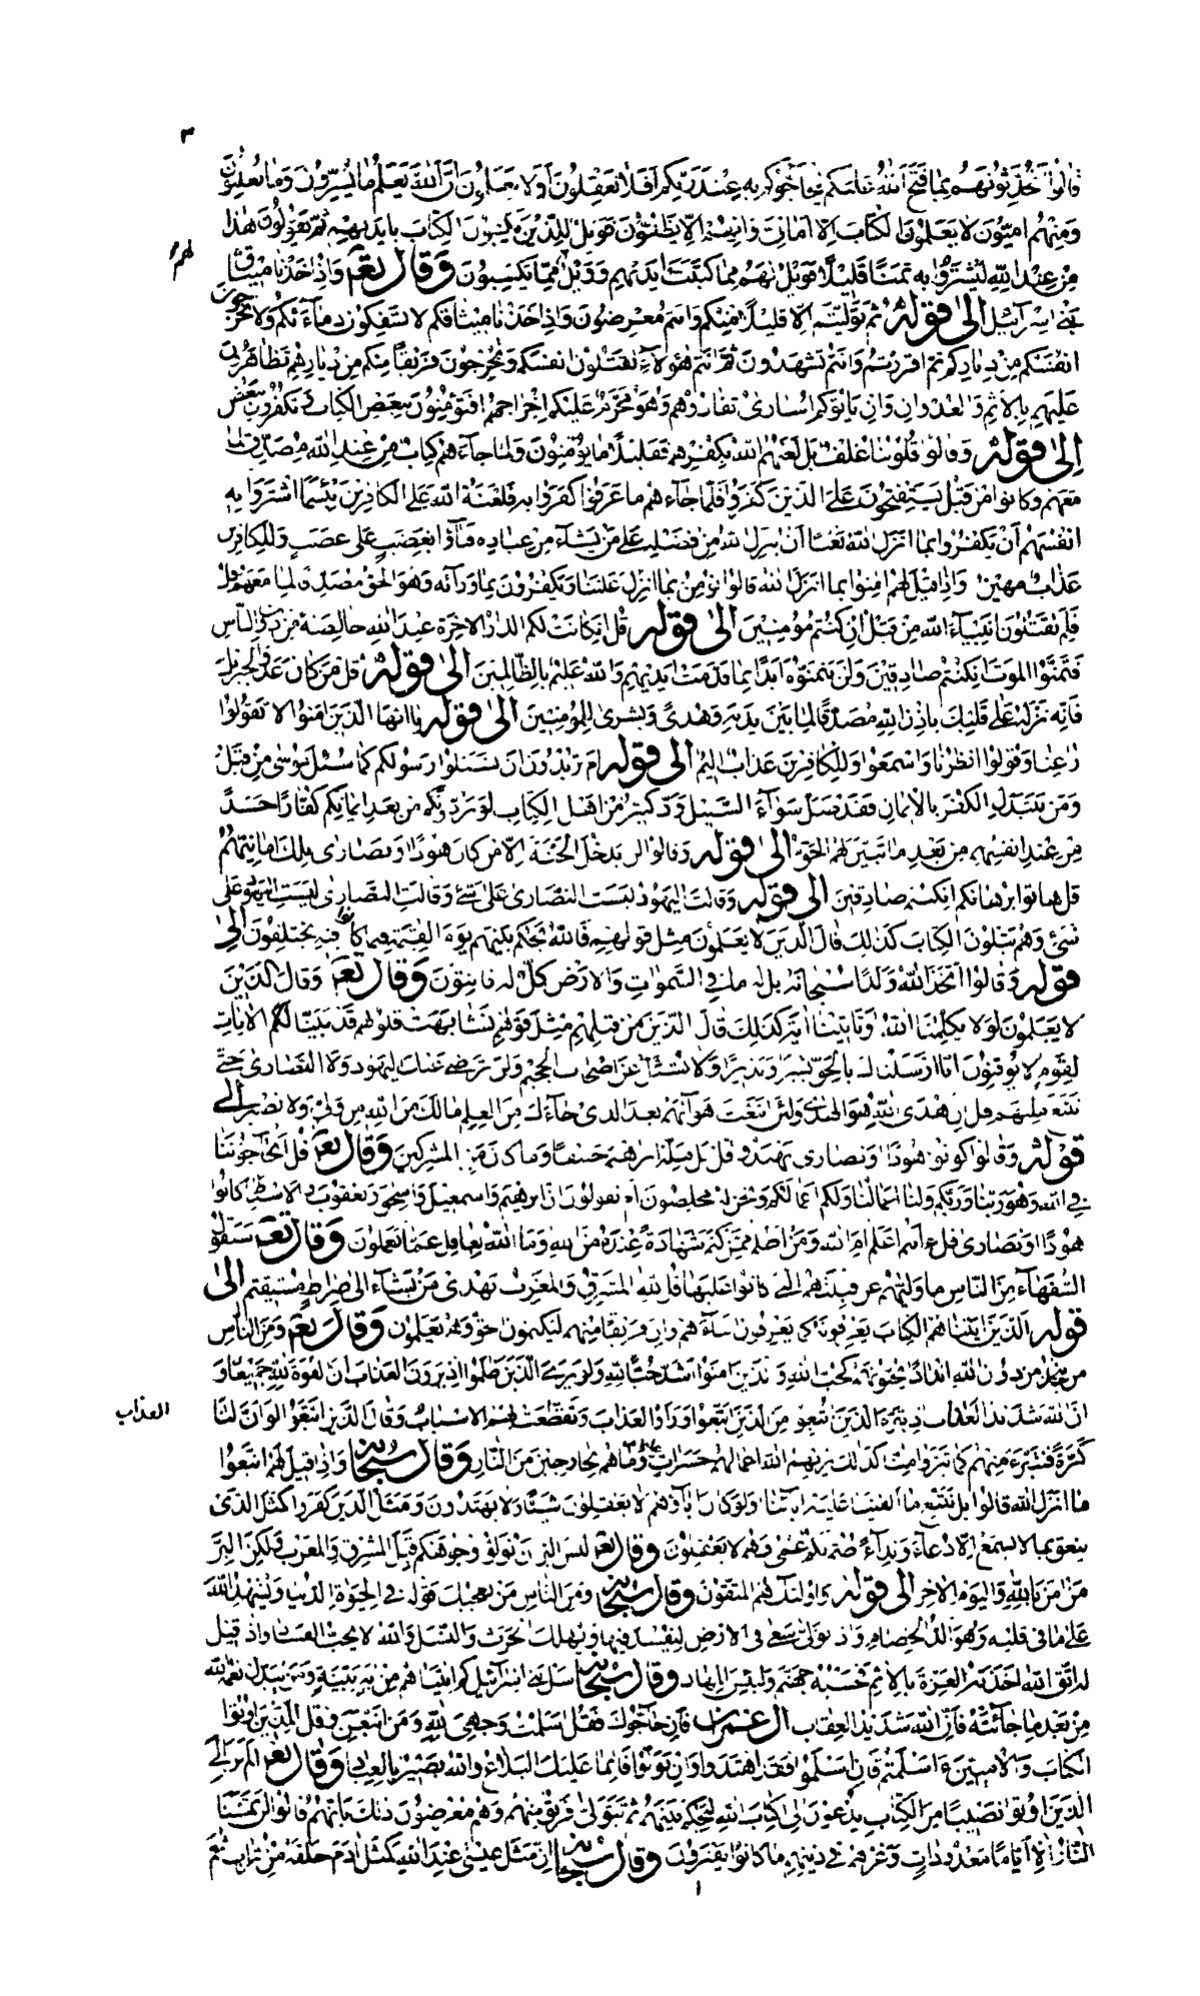 ٣
قالوا أتحدثونهم بما فتح الله عليكم ليحاجوكم به عند ربكم أفلا تعقلون أولا يعلمون أن الله يعلم ما يسرون وما يعلنون
ومنهم اميون لا يعلمون الكتاب الا اماني وان هم الا يظنون فويل للذين يكتبون الكتاب بايديهم ثم يقولون هذا
من عند الله ليشتروا به ثمنا قليلا فويل لهم مما كتبت ايديهم وويل لهم مما يكسبون وقال تع واذ اخذنا ميثاق
بني اسرائيل الى قوله ثم توليتم الا قليلا منكم وانتم معرضون واذ اخذنا ميثاقكم لا تسفكون دماءكم ولا تخرجون
انفسكم من دياركم ثم اقررتم وانتم تشهدون ثم انتم هؤلاء تقتلون انفسكم وتخرجون فريقا منكم من ديارهم تظاهرون
عليهم بالاثم والعدوان وان ياتوكم اسارى تفادوهم وهو محرم عليكم اخراجهم افتؤمنون ببعض الكتاب وتكفرون ببعض
الى قوله وقالوا قلوبنا غلف بل لعنهم الله بكفرهم فقليلا ما يؤمنون ولما جاءهم كتاب من عند الله مصدق لما
معهم وكانوا من قبل يستفتحون على الذين كفروا فلما جاءهم ما عرفوا كفروا به فلعنة الله على الكافرين بئسما اشتروا به
انفسهم أن يكفروا بما انزل الله بغيا ان ينزل الله من فضله على من يشاء من عباده فباؤا بغضب على غضب وللكافرين
عذاب مهين واذا قيل لهم امنوا بما انزل الله قالوا نؤمن بما انزل علينا ويكفرون بما ورآئه وهو الحق مصدقا لما معهم قل
فلم تقتلون انبياء الله من قبل ان كنتم مؤمنين الى قوله قل ان كانت لكم الدار الاخرة عند الله خالصة من دون الناس
فتمنوا الموت ان كنتم صادقين ولن يتمنوه ابدا بما قدمت ايديهم والله عليم بالظالمين الى قوله قل من كان عدوا لجبريل
فانه نزله على قلبك باذن الله مصدقا لما بين يديه وهدى وبشرى للمؤمنين الى قوله يا ايها الذين امنوا لا تقولوا
راعنا وقولوا انظرنا واسمعوا وللكافرين عذاب اليم الى قوله ام تريدون ان تسئلوا رسولكم كما سئل موسى من قبل
ومن يتبدل الكفر بالايمان فقد ضل سواء السبيل ود كثير من اهل الكتاب لو يردونكم من بعد ايمانكم كفارا حسدا
من عند انفسهم من بعد ما تبين لهم الحق الى قوله وقالوا لن يدخل الجنة الا من كان هودا او نصارى تلك امانيهم
قل هاتوا برهانكم ان كنتم صادقين الى قوله وقالت اليهود ليست النصارى على شئ وقالت النصارى ليست اليهود على
شئ وهم يتلون الكتاب كذلك قال الذين لا يعلمون مثل قولهم فالله يحكم بينهم يوم القيمة فيما كانوا فيه يختلفون الى
قوله وقالوا اتخذ الله ولدا سبحانه بل له ما في السموات والارض كل له قانتون وقال تع وقال الذين
لا يعلمون لولا يكلمنا الله او تاتينا اية كذلك قال الذين من قبلهم مثل قولهم تشابهت قلوبهم قد بينا لكم الايات
لقوم يوقنون انا ارسلناك بالحق بشيرا ونذيرا ولا تسئل عن اصحاب الجحيم ولن ترضى عنك اليهود ولا النصارى حتى
تتبع ملتهم قل ان هدى الله هو الهدى ولئن اتبعت هوآئهم بعد الذي جاءك من العلم مالك من الله من ولي ولا نصير الى
قوله وقالوا كونوا هودا او نصارى تهتدوا قل بل ملة ابرهيم حنيفا وما كان من المشركين وقال تع قل اتحاجوننا
في الله وهو ربنا وربكم ولنا اعمالنا ولكم اعمالكم ونحن له مخلصون ام تقولون ان ابرهيم واسمعيل واسحق ويعقوب والاسباط كانوا
هودا او نصارى قل ءانتم اعلم ام الله ومن اظلم ممن كتم شهادة عنده من الله وما الله بغافل عما تعملون وقال تع سيقول
السفهاء من الناس ما وليهم عن قبلتهم التي كانوا عليها قل لله المشرق والمغرب يهدي من يشاء الى صراط مستقيم الى
قوله الذين اتيناهم الكتاب يعرفونه كما يعرفون ابناءهم وان فريقا منهم ليكتمون الحق وهم يعلمون وقال تع ومن الناس
من يتخذ من دون الله اندادا يحبونهم كحب الله والذين امنوا اشد حبا لله ولو يرى الذين ظلموا اذ يرون العذاب ان القوة لله جميعا و
ان الله شديد العذاب اذ تبرء الذين اتبعوا من الذين اتبعوا وراوا العذاب وتقطعت بهم الاسباب وقال الذين اتبعوا لو ان لنا
العذاب
كرة فنتبرء منهم كما تبرؤا منا كذلك يريهم الله اعمالهم حسرات عليهم وما هم بخارجين من النار وقال سبحانه واذا قيل لهم اتبعوا
ما انزل الله قالوا بل نتبع ما الفينا عليه اباءنا ولو كان اباؤهم لا يعقلون شيئا ولا يهتدون ومثل الذين كفروا كمثل الذي
ينعق بما لا يسمع الا دعاء ونداء صم بكم عمى فهم لا يعقلون وقال تع ليس البر ان تولوا وجوهكم قبل المشرق والمغرب ولكن البر
من امن بالله واليوم الاخر الى قوله واولئك هم المتقون وقال سبحانه ومن الناس من يعجبك قوله في الحيوة الدنيا ويشهد الله
على ما في قلبه وهو الد الخصام واذا تولى سعى في الارض ليفسد فيها ويهلك الحرث والنسل والله لا يحب الفساد واذا قيل
له اتق الله اخذته العزة بالاثم فحسبه جهنم ولبئس المهاد وقال سبحانه سل بني اسرائيل كم اتيناهم من اية بينة ومن يبدل نعمة الله
من بعد ما جائته فان الله شديد العقاب ال عمران فان حاجوك فقل اسلمت وجهي لله ومن اتبعن وقل للذين اوتوا
الكتاب والاميين ءاسلمتم فان اسلموا فقد اهتدوا وان تولوا فانما عليك البلاغ والله بصير بالعباد وقال تع الم تر الى
الذين اوتوا نصيبا من الكتاب يدعون الى كتاب الله ليحكم بينهم ثم يتولى فريق منهم وهم معرضون ذلك بانهم قالوا لن تمسنا
النار الا اياما معدودات وغرهم في دينهم ما كانوا يفترون وقال سبحانه ان مثل عيسى عند الله كمثل ادم خلقه من تراب ثم
١